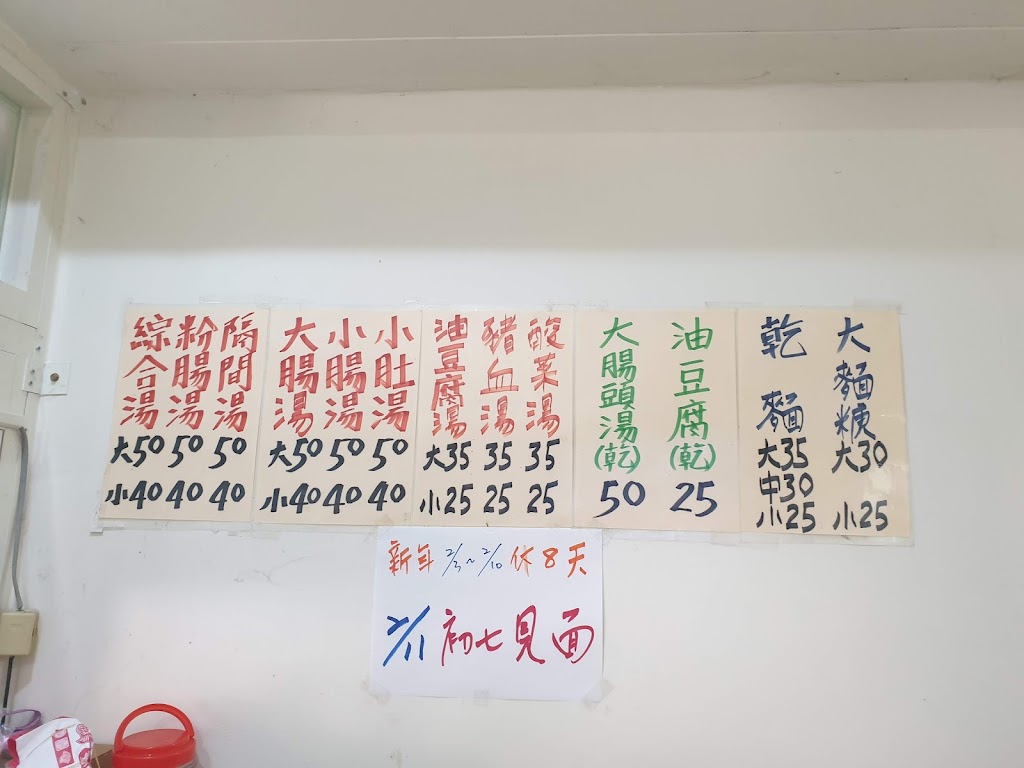 綜合湯
粉腸湯
隔間湯
大50 50 50
小40 40 40
大腸湯
小腸湯
小肚湯
大50 50 50
小40 40 40
油豆腐湯
豬血湯
酸菜湯
大35 35 35
小25 25 25
大腸頭湯(乾)
50
油豆腐(乾)
25
乾麵
大35
中30
小25
大麵粳
大30
小25
新年 2/3~2/10 休8天
2/11 初七見面